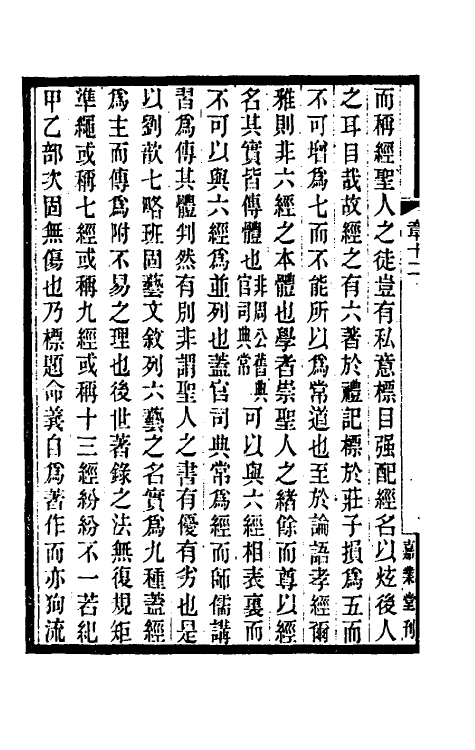 而稱經聖人之徒豈有私意標目强配經名以炫後人
之耳目哉故經之有六著於禮記標於莊子損爲五而
不可增爲七而不能所以爲常道也至於論語孝經爾
雅則非六經之本體也學者崇聖人之緒餘而尊以經
名其實皆傳體也非周公舊典官司典常可以與六經相表裏而
不可以與六經爲並列也蓋官司典常爲經而師儒講
習爲傳其體判然有別非謂聖人之書有優有劣也是
以劉歆七略班固藝文敘列六藝之名實爲九種蓋經
爲主而傳爲附不易之理也後世著錄之法無復規矩
準繩或稱七經或稱九經或稱十三經紛紛不一若紀
甲乙部次固無傷也乃標題命義自爲著作而亦狥流
章十二
嘉業堂刊